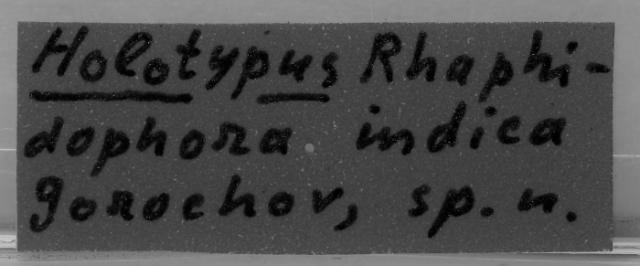 Holotypus Rhaphi-
dophora indica
gorochov, sp. n.